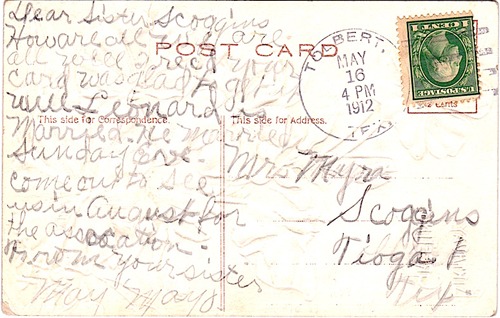 Dear Sister Scoggins
How are all hope are
all well I rec'd your
card was glad to get it
Will Leonard is
Married. He married
Sunday eve.
come out to see
us in August for
the association
From your sister
May Mays
POST CARD
This side for Correspondence.
This side for Address.
TOLBERT,
MAY
16
4 PM
1912
TEX.
Mrs Myra
Scoggins
Tioga
Tex.